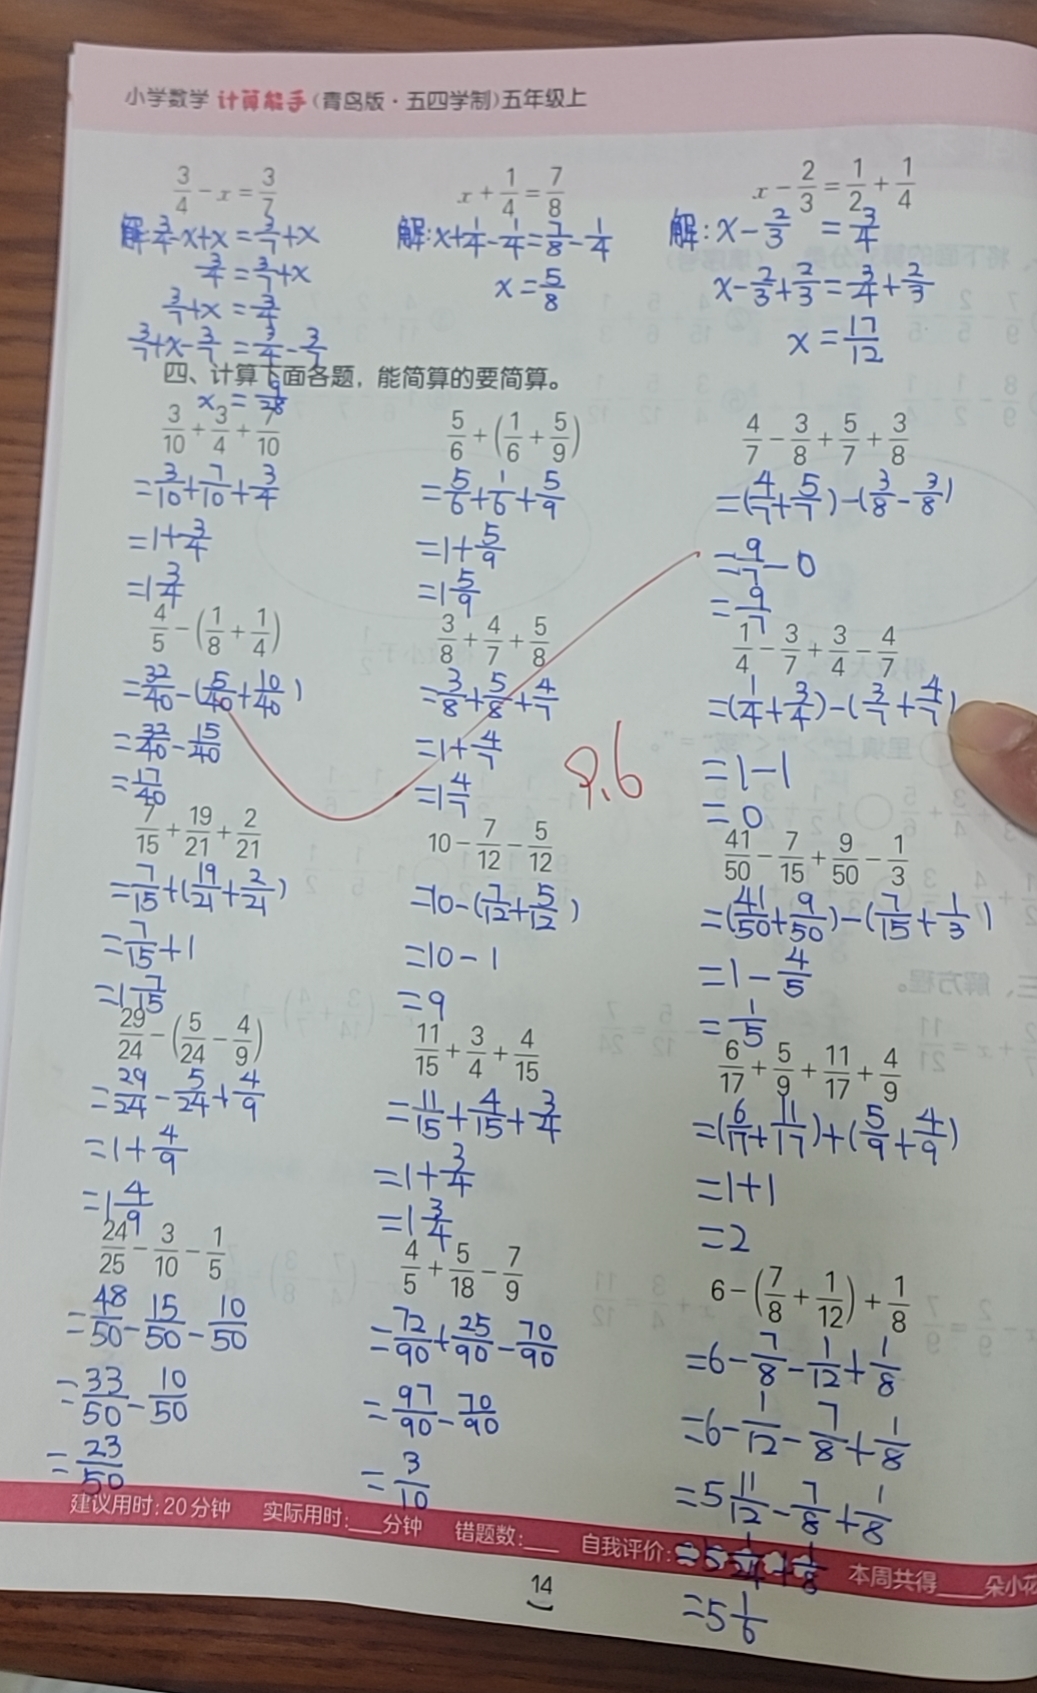 小学数学 计算能手(青岛版·五四学制)五年级上
3/4 - x = 3/7
解:3/4-x+x=3/7+x
3/4=3/7+x
3/7+x=3/4
3/7+x-3/7=3/4-3/7
x=9/28
x + 1/4 = 7/8
解:x+1/4-1/4=7/8-1/4
x=5/8
x - 2/3 = 1/2 + 1/4
解:x-2/3=3/4
x-2/3+2/3=3/4+2/3
x=17/12
四、计算下面各题,能简算的要简算。
3/10 + 3/4 + 7/10
=3/10+7/10+3/4
=1+3/4
=1 3/4
5/6 + (1/6 + 5/9)
=5/6+1/6+5/9
=1+5/9
=1 5/9
4/7 - 3/8 + 5/7 + 3/8
=(4/7+5/7)-(3/8-3/8)
=9/7-0
=9/7
4/5 - (1/8 + 1/4)
=32/40-(5/40+10/40)
=32/40-15/40
=17/40
3/8 + 4/7 + 5/8
=3/8+5/8+4/7
=1+4/7
=1 4/7
1/4 - 3/7 + 3/4 - 4/7
=(1/4+3/4)-(3/7+4/7)
=1-1
=0
9.6
7/15 + 19/21 + 2/21
=7/15+(19/21+2/21)
=7/15+1
=1 7/15
10 - 7/12 - 5/12
=10-(7/12+5/12)
=10-1
=9
41/50 - 7/15 + 9/50 - 1/3
=(41/50+9/50)-(7/15+1/3)
=1-4/5
=1/5
29/24 - (5/24 - 4/9)
=29/24-5/24+4/9
=1+4/9
=1 4/9
11/15 + 3/4 + 4/15
=11/15+4/15+3/4
=1+3/4
=1 3/4
6/17 + 5/9 + 11/17 + 4/9
=(6/17+11/17)+(5/9+4/9)
=1+1
=2
24/25 - 3/10 - 1/5
=48/50-15/50-10/50
=33/50-10/50
=23/50
4/5 + 5/18 - 7/9
=72/90+25/90-70/90
=97/90-70/90
=3/10
6 - (7/8 + 1/12) + 1/8
=6-7/8-1/12+1/8
=6-1/12-7/8+1/8
=5 11/12-7/8+1/8
=5 1/24+1/8
=5 1/6
建议用时:20分钟 实际用时:___分钟 错题数:___ 自我评价: 本周共得____朵小花
14